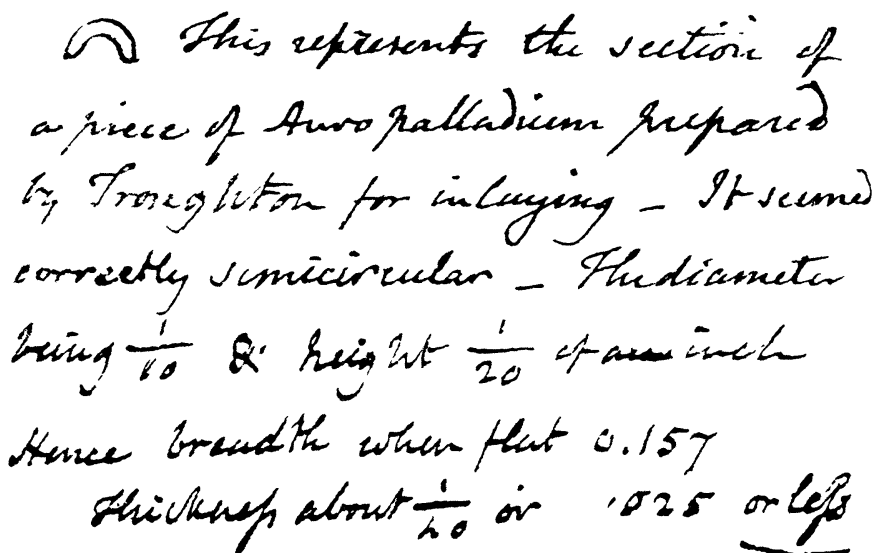 This represents the section of
a piece of Auro palladium prepared
by Troughton for inlaying – It seemed
correctly semicircular – The diameter
being 1/10 & height 1/20 of an inch
Hence breadth when flat 0.157
Thickness about 1/40 or .025 or less